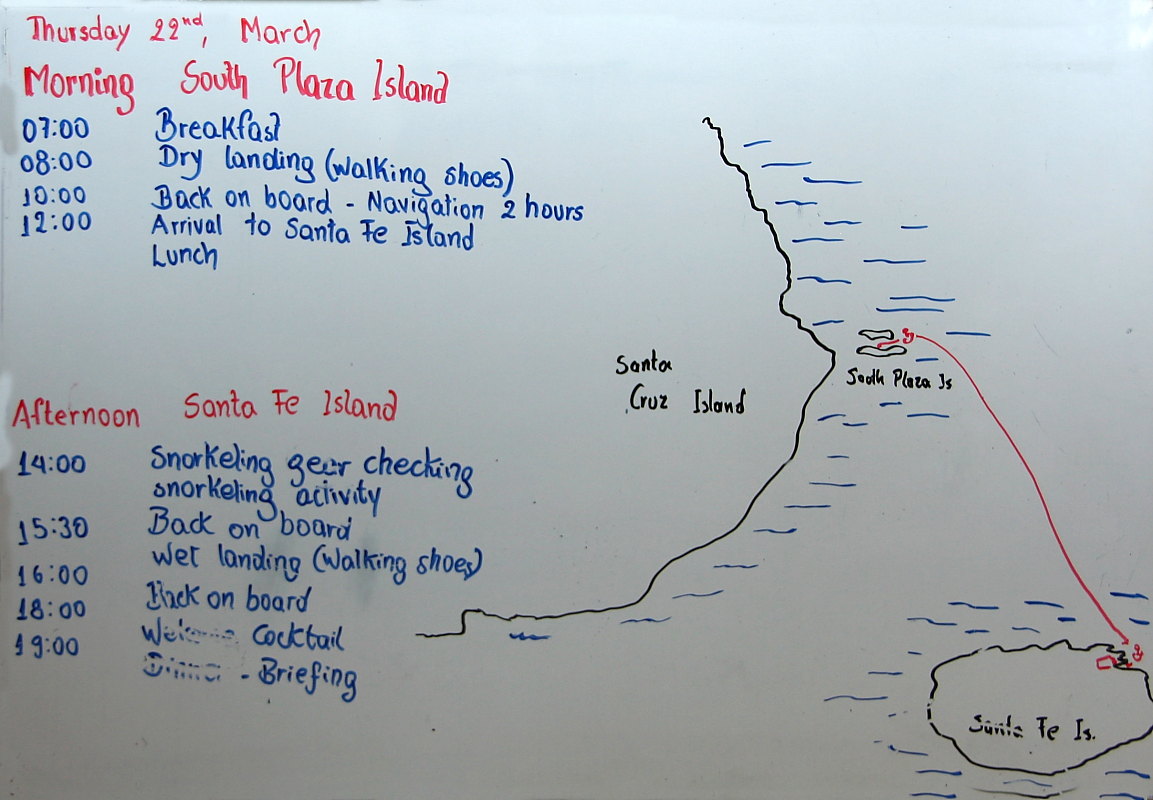 Thursday 22nd, March
Morning South Plaza Island
07:00 Breakfast
08:00 Dry landing (walking shoes)
10:00 Back on board - Navigation 2 hours
12:00 Arrival to Santa Fe Island
Lunch
Afternoon Santa Fe Island
14:00 Snorkeling gear checking
snorkeling activity
15:30 Back on board
16:00 Wet landing (Walking shoes)
18:00 Back on board
19:00 Welcome Cocktail
Dinner - Briefing
Santa
Cruz Island
South Plaza Is
Santa Fe Is.